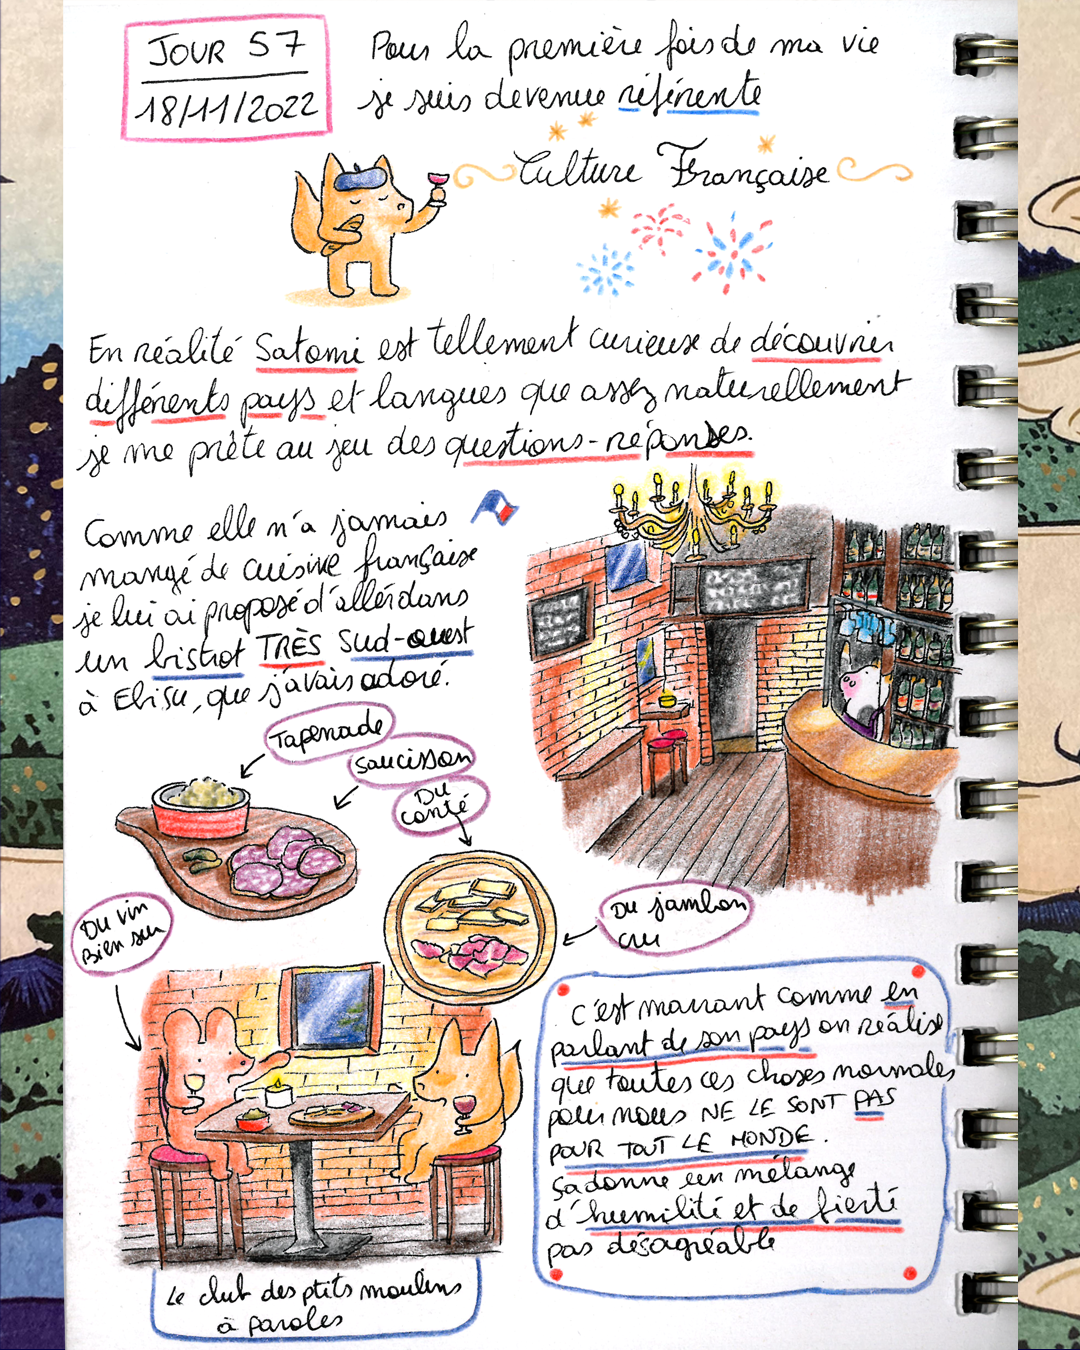 JOUR 57
18/11/2022
Pour la première fois de ma vie
je suis devenue référente
Culture Française
En réalité Satomi est tellement curieuse de découvrir
différents pays et langues que assez naturellement
je me prête au jeu des questions-réponses.
Comme elle n'a jamais
mangé de cuisine française
je lui ai proposé d'aller dans
un bistrot TRÈS sud-ouest
à Ebisu, que j'avais adoré.
Tapenade
saucisson
Du
comté
Du vin
Bien sur
Du jambon
cru
C'est marrant comme en
parlant de son pays on réalise
que toutes ces choses normales
pour nous NE LE SONT PAS
POUR TOUT LE MONDE.
ça donne un mélange
d'humilité et de fierté
pas désagréable
Le club des ptits moulins
à paroles